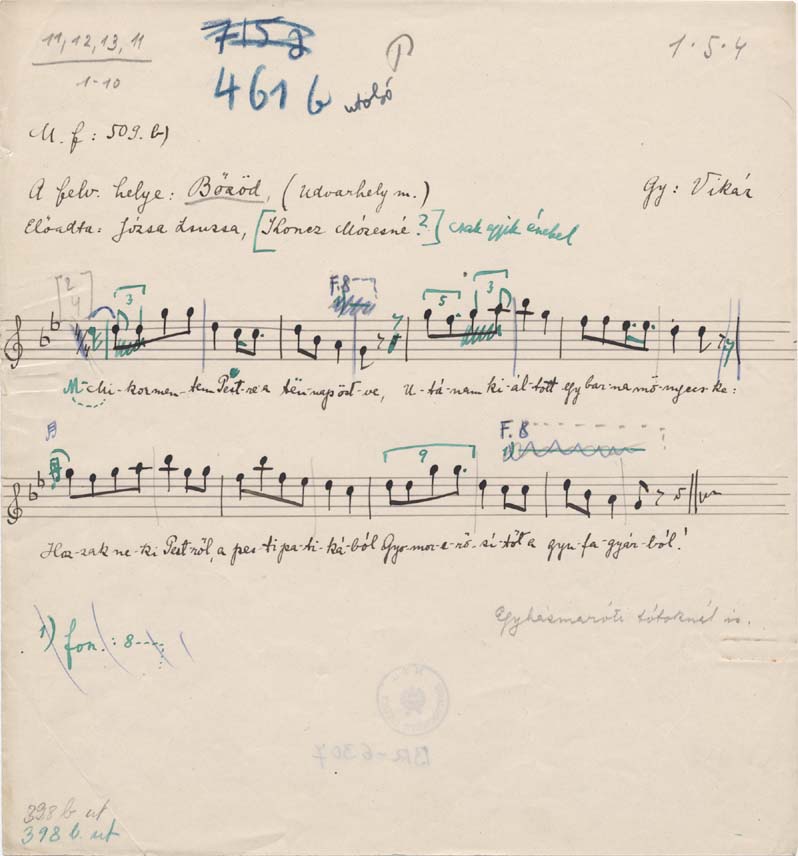 11, 12, 13, 11
1-10
715 g
461 b utolsó
1·5·4
M. f: 509. b)
A felv. helye: Bözöd, (Udvarhely m.)
Gy: Vikár
Előadta: Józsa Zsuzsa, [Koncz Mózesné?] csak egyik énekel
2
4
3
F. 8
5
3
Mi-kor men-tem Pest-re a tën-nap öst-ve, U-tá-nam ki-ál-tott egy bar-na mö-nyecs-ke:
F. 8
9
Hoz-zak ne-ki Pest-ről, a pes-ti pa-ti-ká-ból Gyo-mor-e-rő-sí-tőt a gyu-fa-gyár-ból!
1) fon. : 8
Egyházmaróti tótoknál is.
BR-6307
398 b. ut
398 b. ut